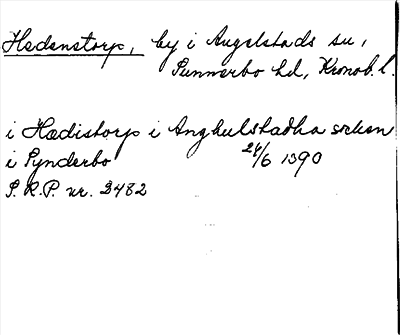 Hedenstorp, by i Angelstads sn,
Sunnerbo hd, Kronob. l.
i Hædistorp i Anghulstadha sokn
i Synderbo 24/6 1390
S.R.P. nr. 2482